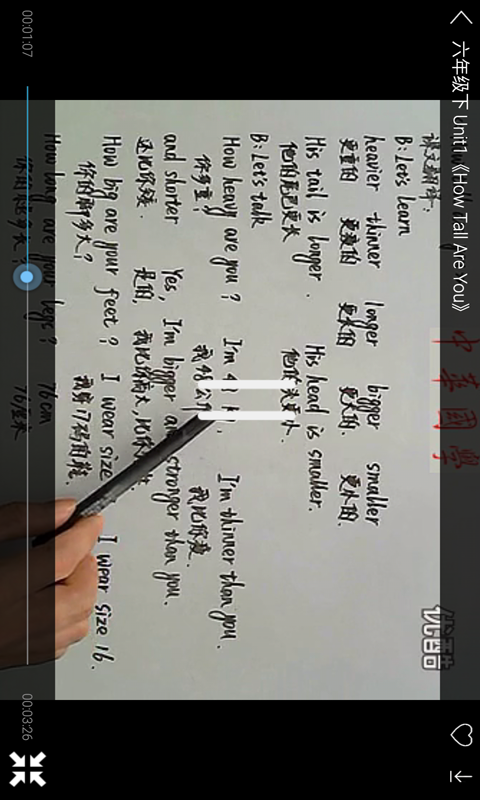 六年级下 Unit1《How Tall Are You》
课文翻译.
B: Let's learn
heavier thinner longer bigger smaller
更重的 更瘦的 更长的 更大的. 更小的.
His tail is longer. His head is smaller.
他的尾巴更长
B: Let's talk
How heavy are you? I'm I'm thinner than you.
你多重? 我比你瘦.
and shorter Yes, I'm bigger stronger than you.
还比你矮. 是的, 我比你高大,
How big are your feet? I wear size I wear size 16.
你的脚多大? 我穿17码的鞋.
How long are your legs? 76 cm
76厘米
中華國學
优酷
00:01:07
00:03:26